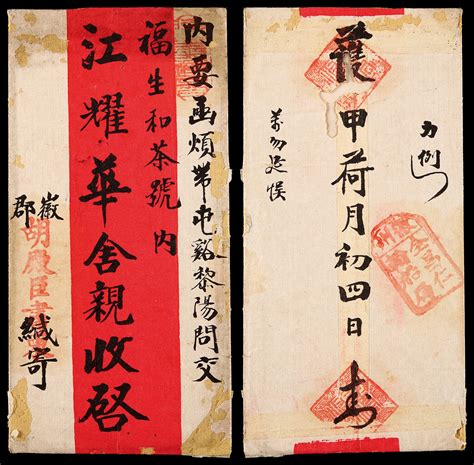 内要函煩帶屯谿黎陽問交
福生和茶號内
江耀華舍親收啓
徽郡
胡殿臣書
緘寄
力例
護
甲荷月初四日
萬勿延悮